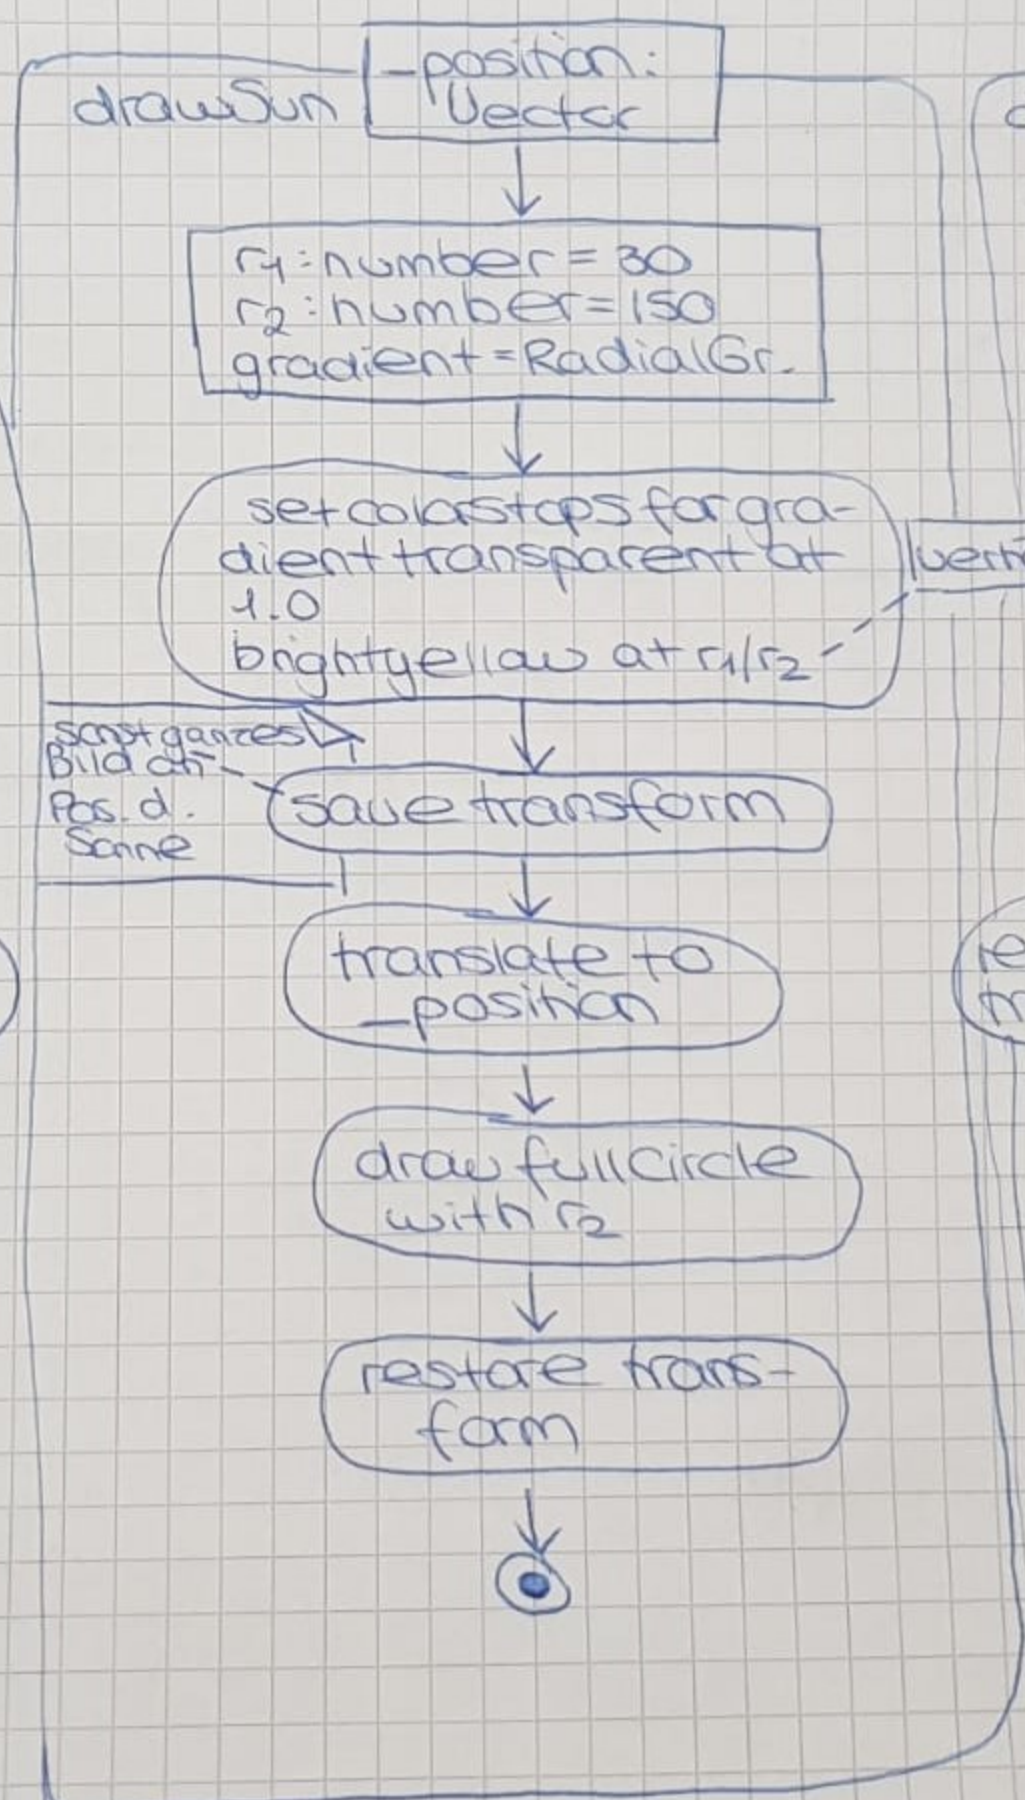 drawSun
_position:
Vector
r1:number=30
r2:number=150
gradient=RadialGr.
set colorstops for gra-
dient transparent at
1.0
bright yellow at r1/r2
sonst ganzes
Bild an
Pos. d.
Sonne
save transform
translate to
_position
draw full circle
with r2
restore trans-
form